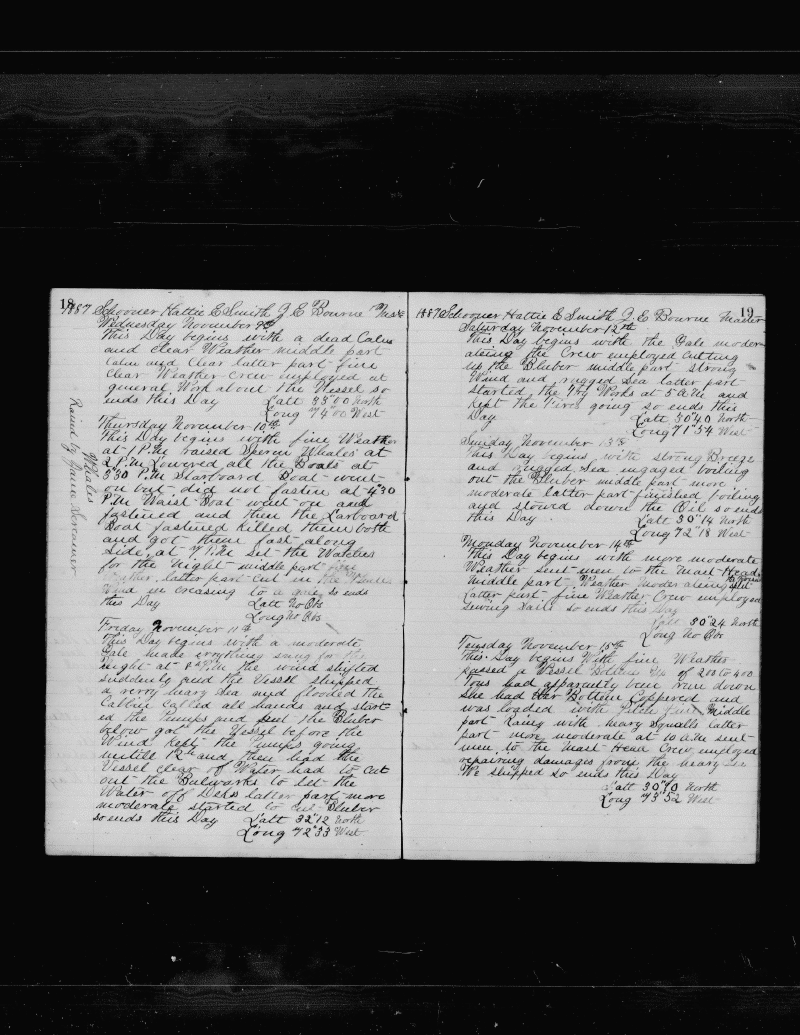 18
1887 Schooner Hattie E Smith J. E Bourne
Wednesday November 9th
This Day begins with a dead Calm
and Clear Weather middle part
Calm and Clear latter part fine
Clear Weather Crew employed at
general Work about the Vessel so
ends this Day Latt 33"00 North
Long 74"00 West
Thursday November 10th
This Day begins with fine Weather
at 1 P.M raised Sperm Whales at
2 P.M Lowered all the Boats at
3"30 P.M Starboard Boat went
on but did not fasten at 4"30
P.M Waist Boat went on and
fastened and then the Larboard
Boat fastened Killed them both
and got them fast along
Side at 7 P.M set the Watches
for the night middle part fine
Weather latter part Cut in the Whale
Wind increasing to a gale so ends
this Day Latt No Obs
Long No Obs
Whales
Raised by
Friday November 11th
This Day begins with a moderate
Gale made everything snug for the
night at 8 P.M the wind shifted
suddenly and the Vessel shipped
a verry heavy Sea and flooded the
Cabbin Called all hands and start
ed the Pumps and put the Bluber
below got the Vessel before the
Wind Kept the Pumps going
untile 12 and then had the
Vessel clear of Water had to Cut
out the Bulwarks to let the
Water off Deks latter part more
moderate started to Cut Bluber
so ends this Day Latt 32"12 North
Long 72"33 West
19
1887 Schooner Hattie E Smith J. E Bourne Master
Saturday November 12th
This Day begins with the Gale moder
ateing the Crew employed Cutting
up the Bluber middle part strong
Wind and rugged Sea latter part
started the Try Works at 5 A.M and
Kept the Fires going so ends this
Day Latt 30"40 North
Long 71"54 West
Sunday November 13th
This Day begins with strong Breeze
and rugged Sea ingaged boiling
out the Bluber middle part more
moderate latter part finished boiling
and stowd down the Oil so ends
this Day Latt 30"14 North
Long 72"18 West
Monday November 14th
This Day begins with more moderate
Weather sent men to the Mast Head
middle part Weather moderateing
Latter part fine Weather Crew employed
Sewing Sails so ends this Day
Latt 30"24 North
Long No Obs
Tuesday November 15th
This Day begins With fine Weather
passed a Vessel Bottom up of 200 to 400
Tons had apparently been run down
She had her Bottom Coppered and
was loaded with Pitch Pine Middle
part Rainey with heavy Squalls latter
part more moderate at 10 A.M sent
men to the Mast Head Crew employed
repairing damages from the heavy Sea
We shipped so ends this Day
Latt 30"10 North
Long 73"52 West